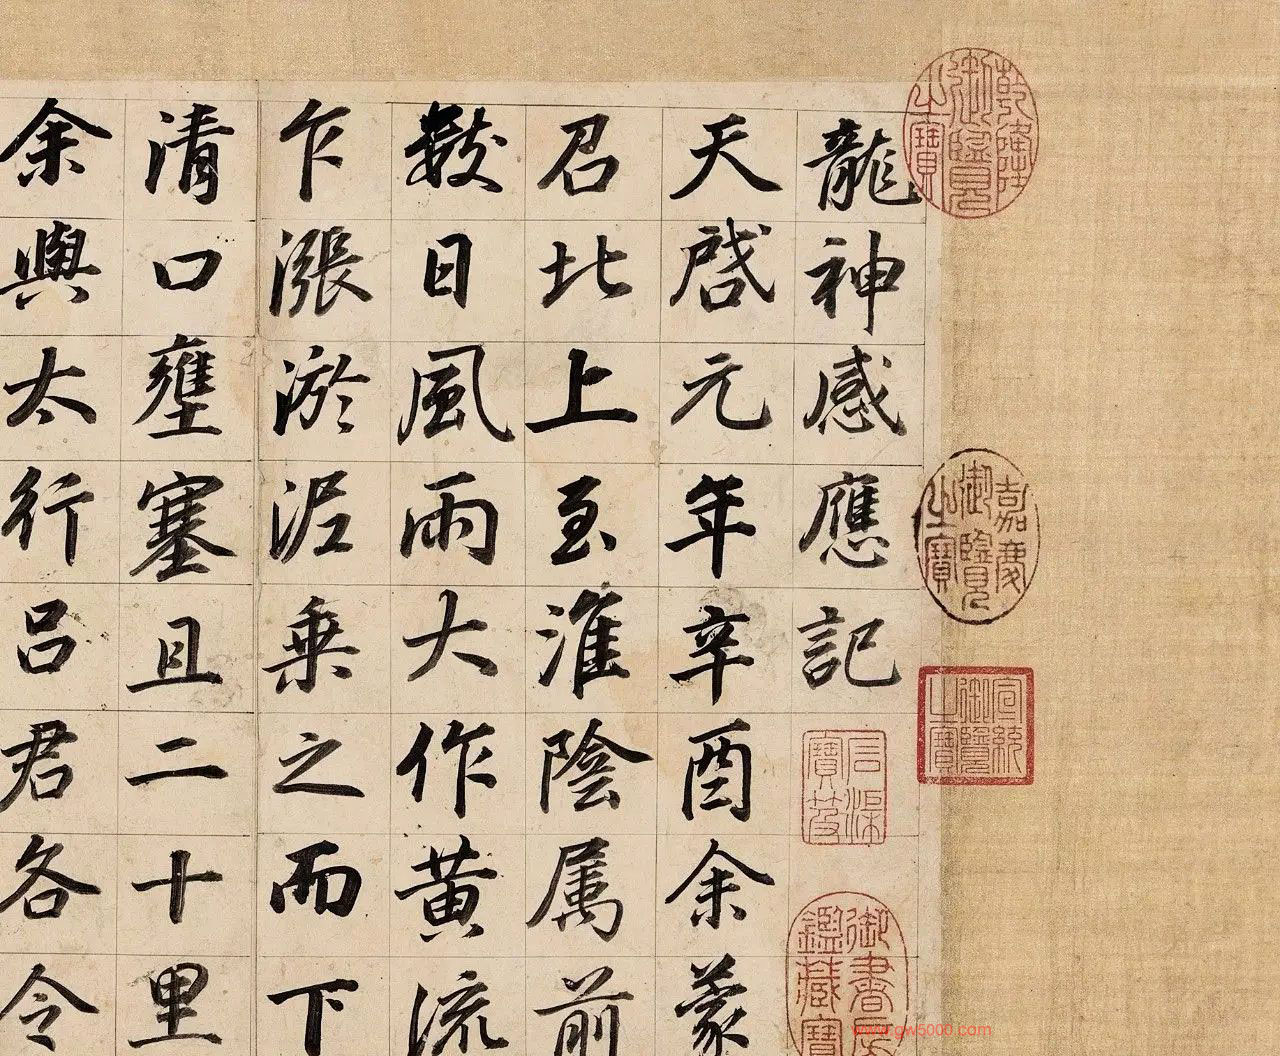 龍神感應記
天啓元年辛酉余蒙
召北上至淮陰属前
數日風雨大作黃流
乍漲淤泥乗之而下
清口壅塞且二十里
余與太行呂君各令
乾隆御覽之寶
嘉慶御覽之寶
宣統御覽之寶
御書房鑑藏寶
www.gw5000.com